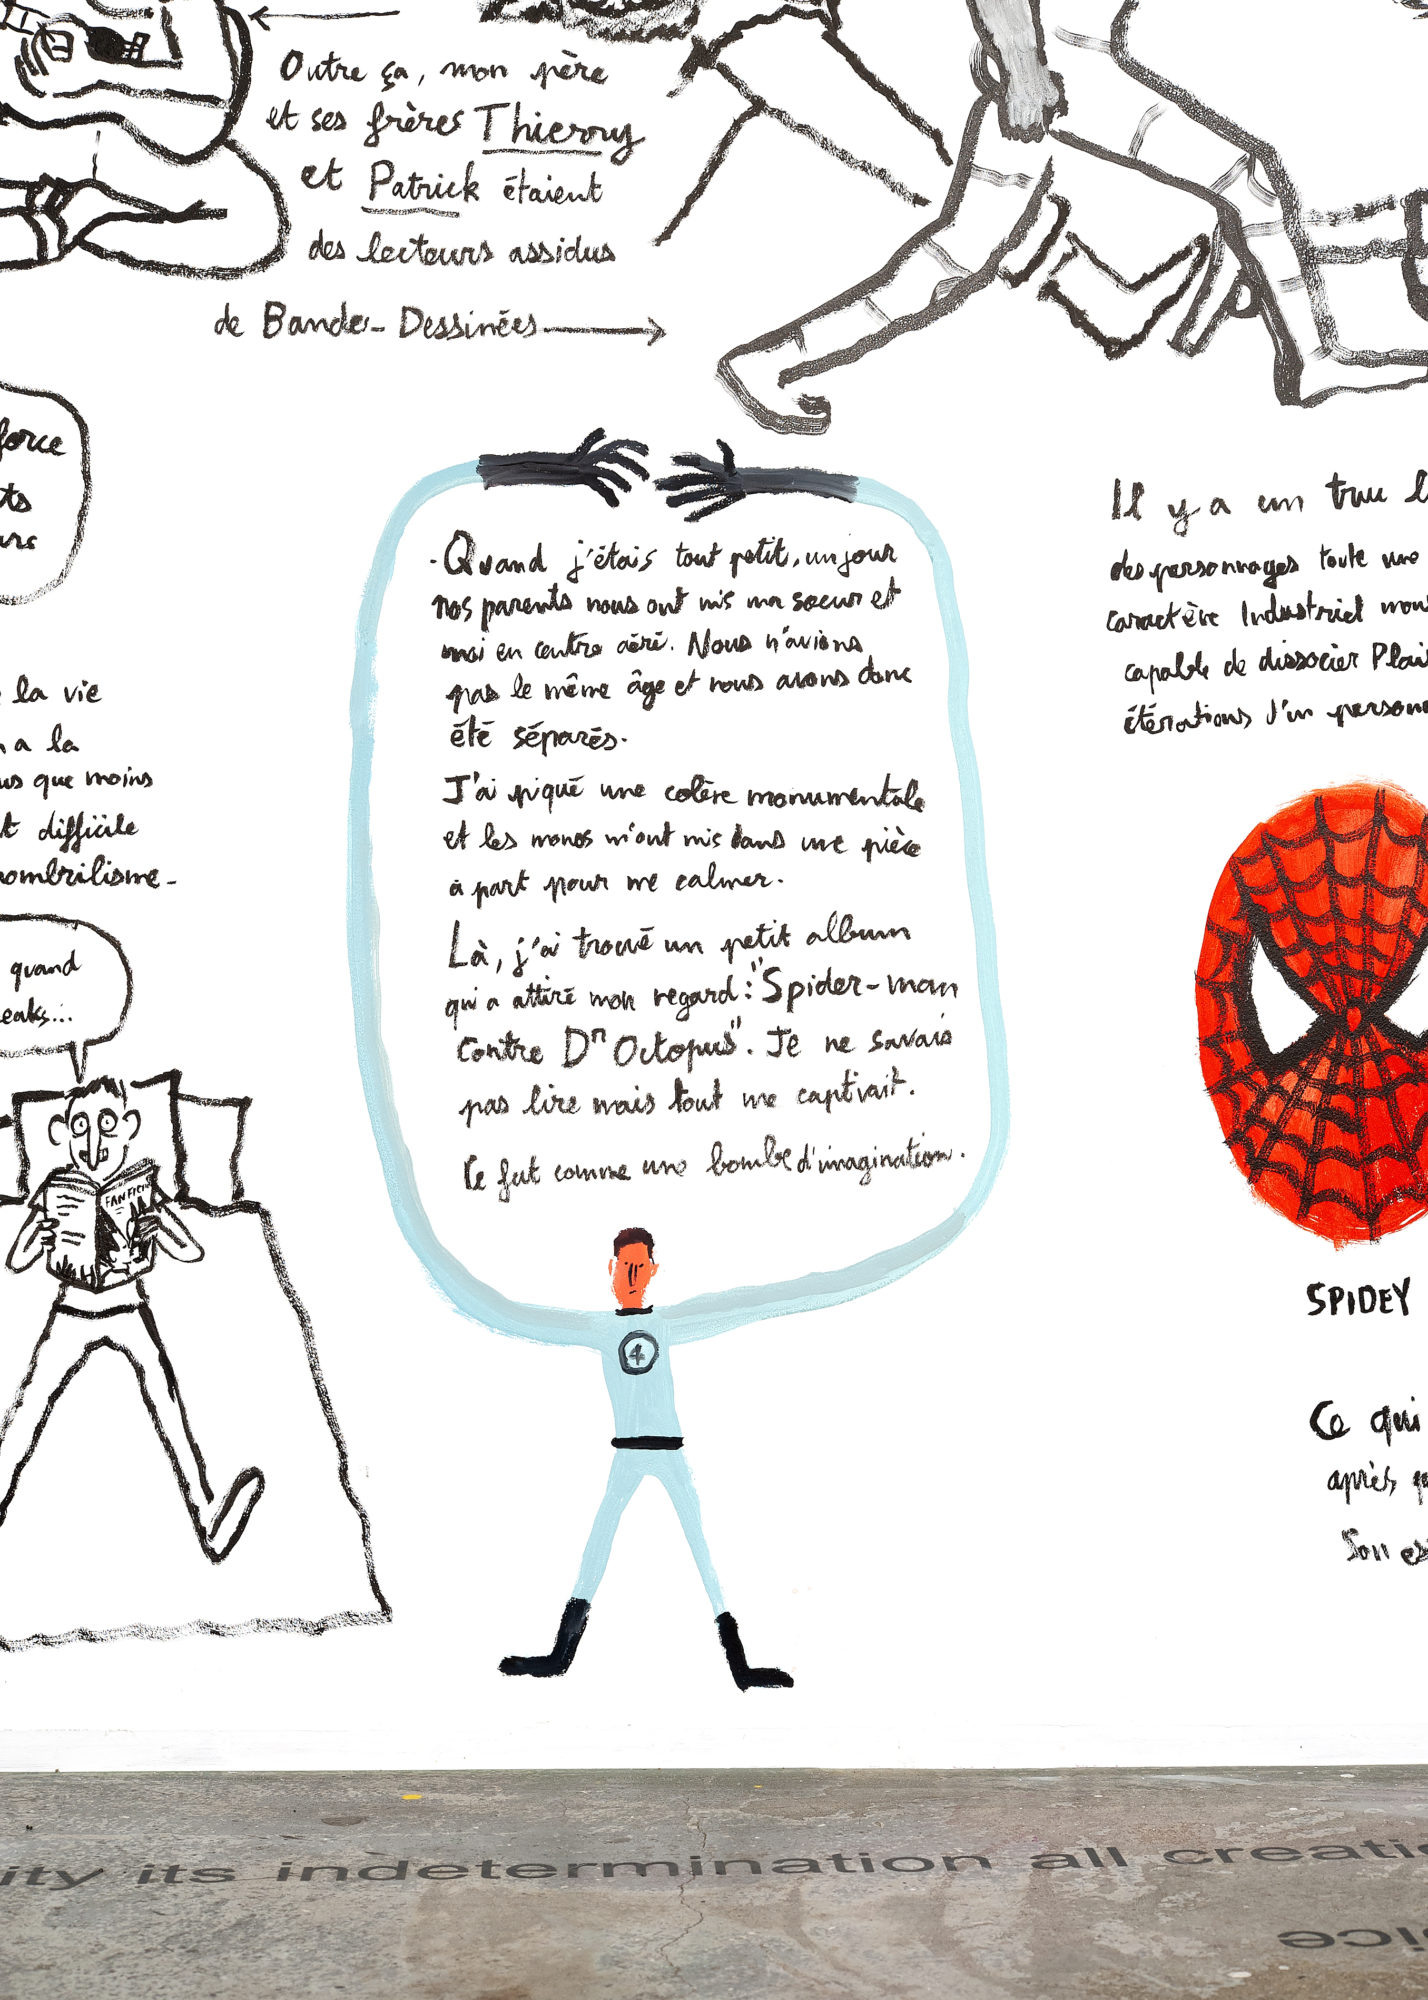 Outre ça, mon père
et ses frères Thierry
et Patrick étaient
des lecteurs assidus
de Bande-Dessinées
force
la vie
a la
que moins
difficile
nombrilisme
quand
eaks...
FANFICI
·Quand j'étais tout petit, un jour
nos parents nous ont mis ma soeur et
moi en centre aéré. Nous n'avions
pas le même âge et nous avons donc
été séparés.
J'ai piqué une colère monumentale
et les monos m'ont mis dans une pièce
à part pour me calmer.
Là, j'ai trouvé un petit album
qui a attiré mon regard: "Spider-man
contre Dr Octopus". Je ne savais
pas lire mais tout me captivait.
Ce fut comme une bombe d'imagination.
4
Il y a un truc
des personnages toute une
caractère Industriel
capable de dissocier
d'un
SPIDEY
Ce qui
après
Son
ity its indetermination all creatio
oice